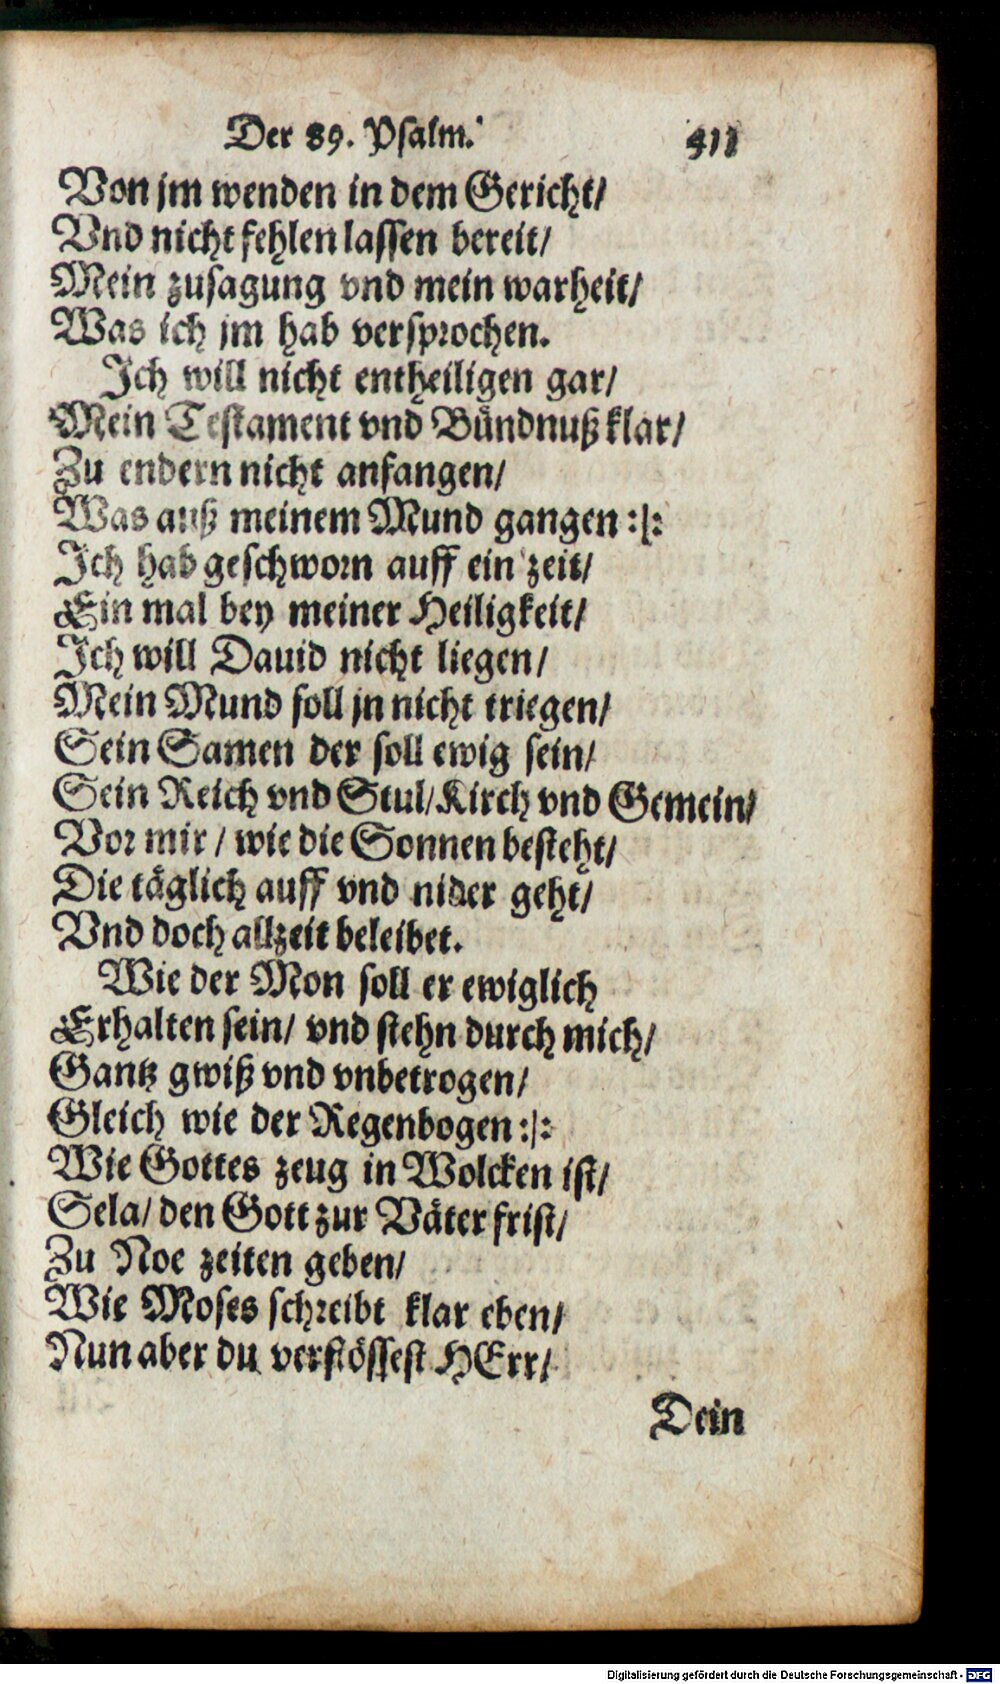 Der 89. Psalm. 411
Von jm wenden in dem Gericht/
Vnd nicht fehlen lassen bereit/
Mein zusagung vnd mein warheit/
Was ich jm hab versprochen.
Ich will nicht entheiligen gar/
Mein Testament vnd Bündnuß klar/
Zu endern nicht anfangen/
Was auß meinem Mund gangen :|:
Ich hab geschworn auff ein zeit/
Ein mal bey meiner Heiligkeit/
Ich will Dauid nicht liegen/
Mein Mund soll jn nicht triegen/
Sein Samen der soll ewig sein/
Sein Reich vnd Stul/ Kirch vnd Gemein/
Vor mir / wie die Sonnen besteht/
Die täglich auff vnd nider geht/
Vnd doch allzeit beleibet.
Wie der Mon soll er ewiglich
Erhalten sein/ vnd stehn durch mich/
Gantz gwiß vnd vnbetrogen/
Gleich wie der Regenbogen :|:
Wie Gottes zeug in Wolcken ist/
Sela/ den Gott zur Väter frist/
Zu Noe zeiten geben/
Wie Moses schreibt klar eben/
Nun aber du verstössest HErr/
Dein
Digitalisierung gefördert durch die Deutsche Forschungsgemeinschaft - DFG